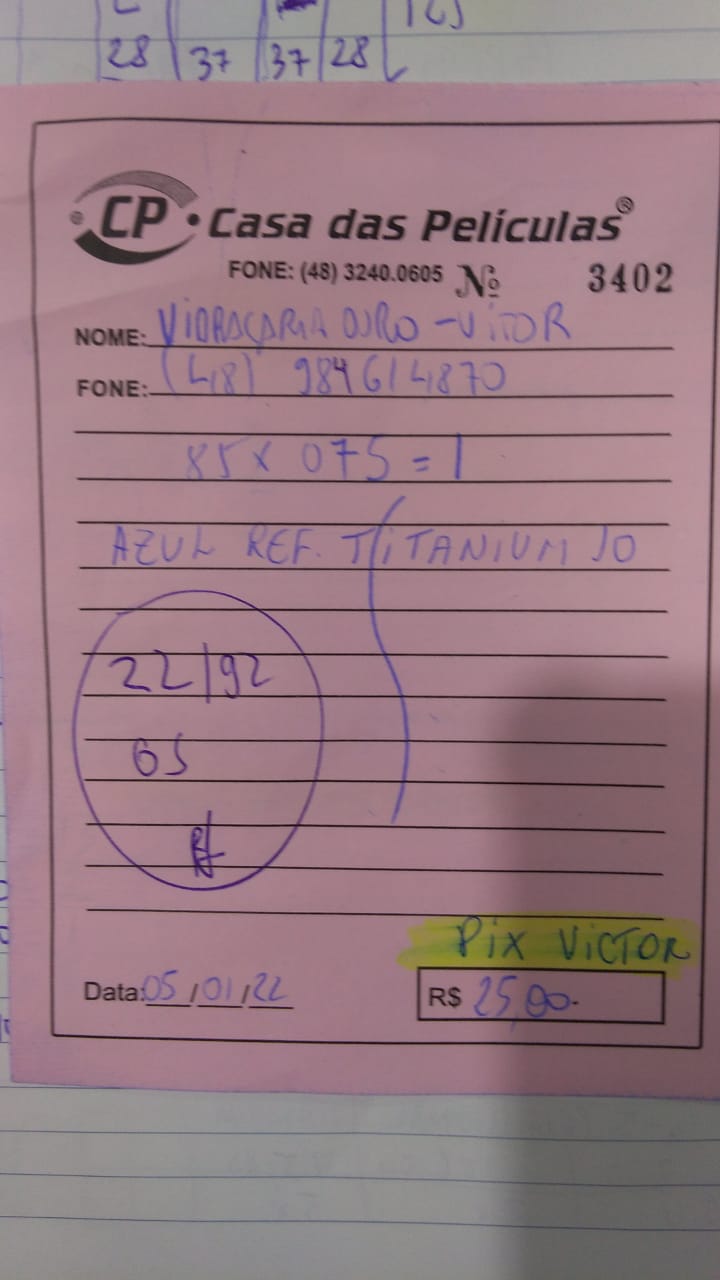 28 37 37 28
CP • Casa das Películas®
FONE: (48) 3240.0605 Nº 3402
NOME: VIDRAÇARIA OURO - VITOR
FONE: (48) 984614870
85 x 075 = 1
AZUL REF. TITANIUM 10
22/92
GS
PIX VICTOR
Data: 05/01/22 R$ 25,00-